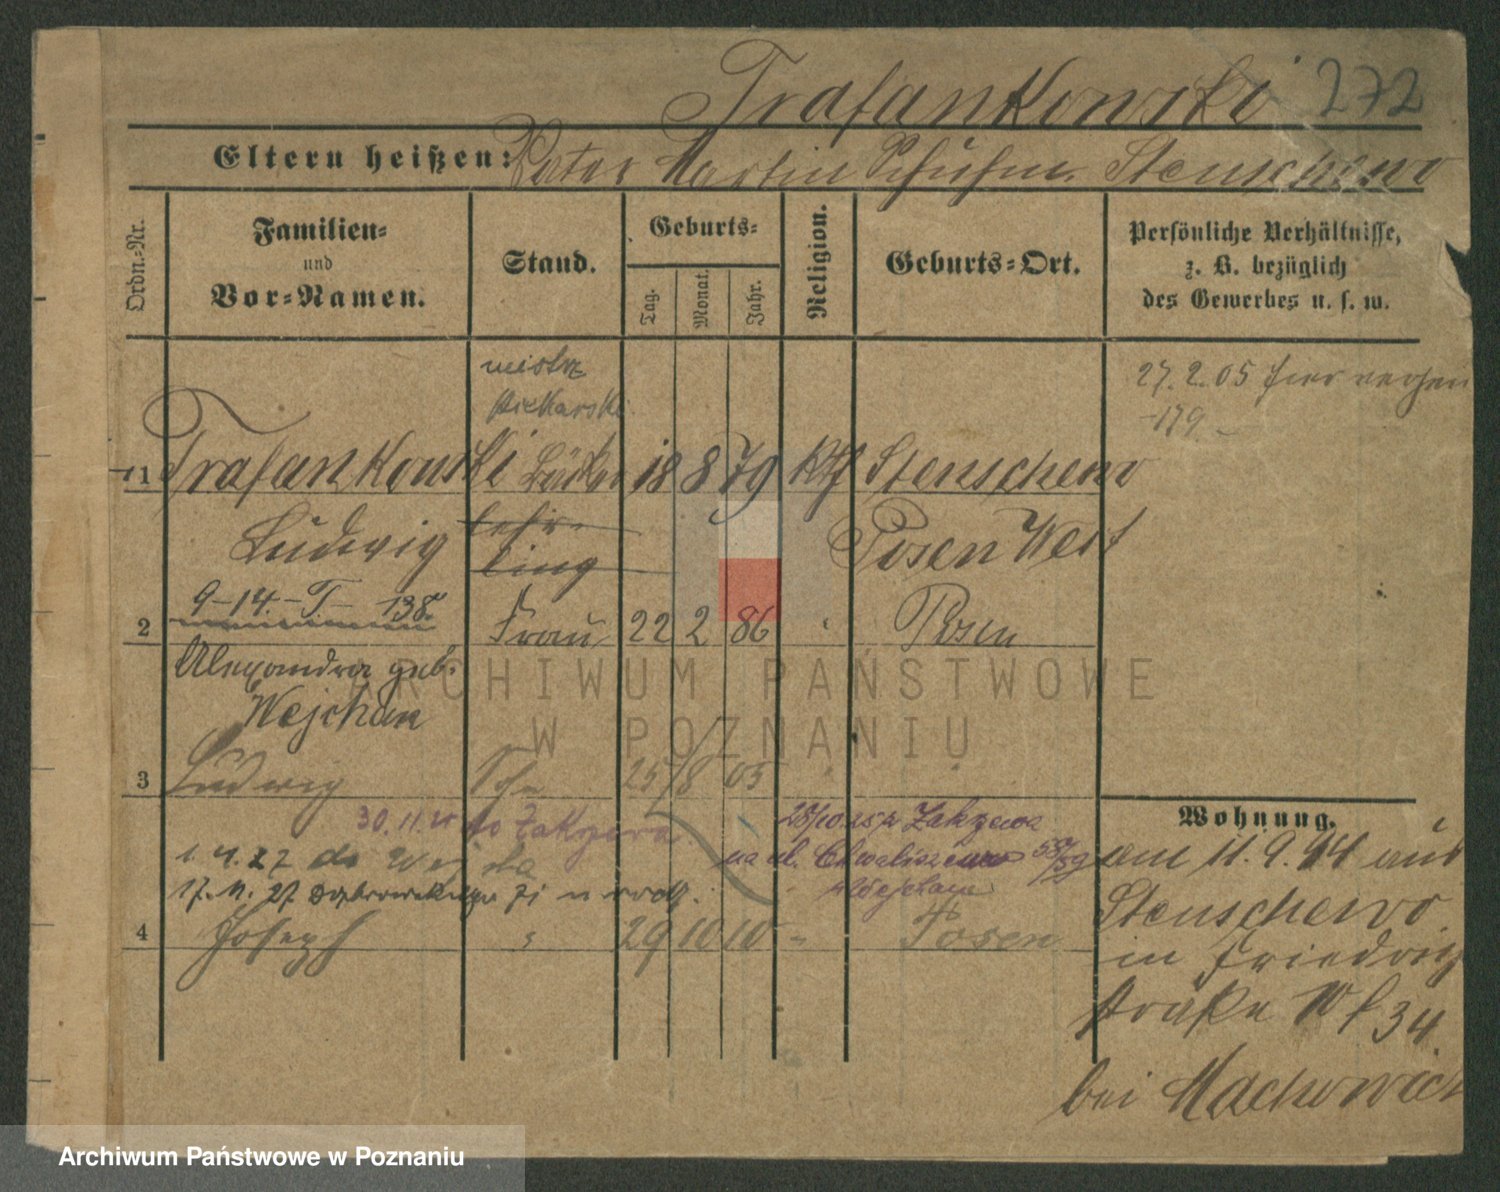 Trafankowski 272
Eltern heißen: Vater Martin Schuhm. Stenschewo
Ordn.-Nr.
Familien-
und
Vor-Namen.
Stand.
Geburts-
Tag.
Monat.
Jahr.
Religion.
Geburts-Ort.
Persönliche Verhältnisse,
z. B. bezüglich
des Gewerbes u. s. w.
mistrz
piekarski
27. 2. 05 hier
1 Trafankowski Bäcker 18 8 79 kth Stenschewo
Ludwig lehr-
ling
Posen West
9-14.-T- 138.
2 Frau 22 2 86 " Posen
Alexandra geb.
Wejchan
3 Ludwig Sohn 25 8 05 " "
30.11.25 do Zakrzewa.
25/10.25 z Zakrzewa
1. 4. 27 do
na ul. Chwaliszewo
17. 11. 27
4 Joseph " 29 10 10 " Posen
Wohnung.
am 11.9.94 aus
Stenschewo
in Friedrich
straße No 34.
bei Machowicz
ARCHIWUM PAŃSTWOWE
W POZNANIU
Archiwum Państwowe w Poznaniu